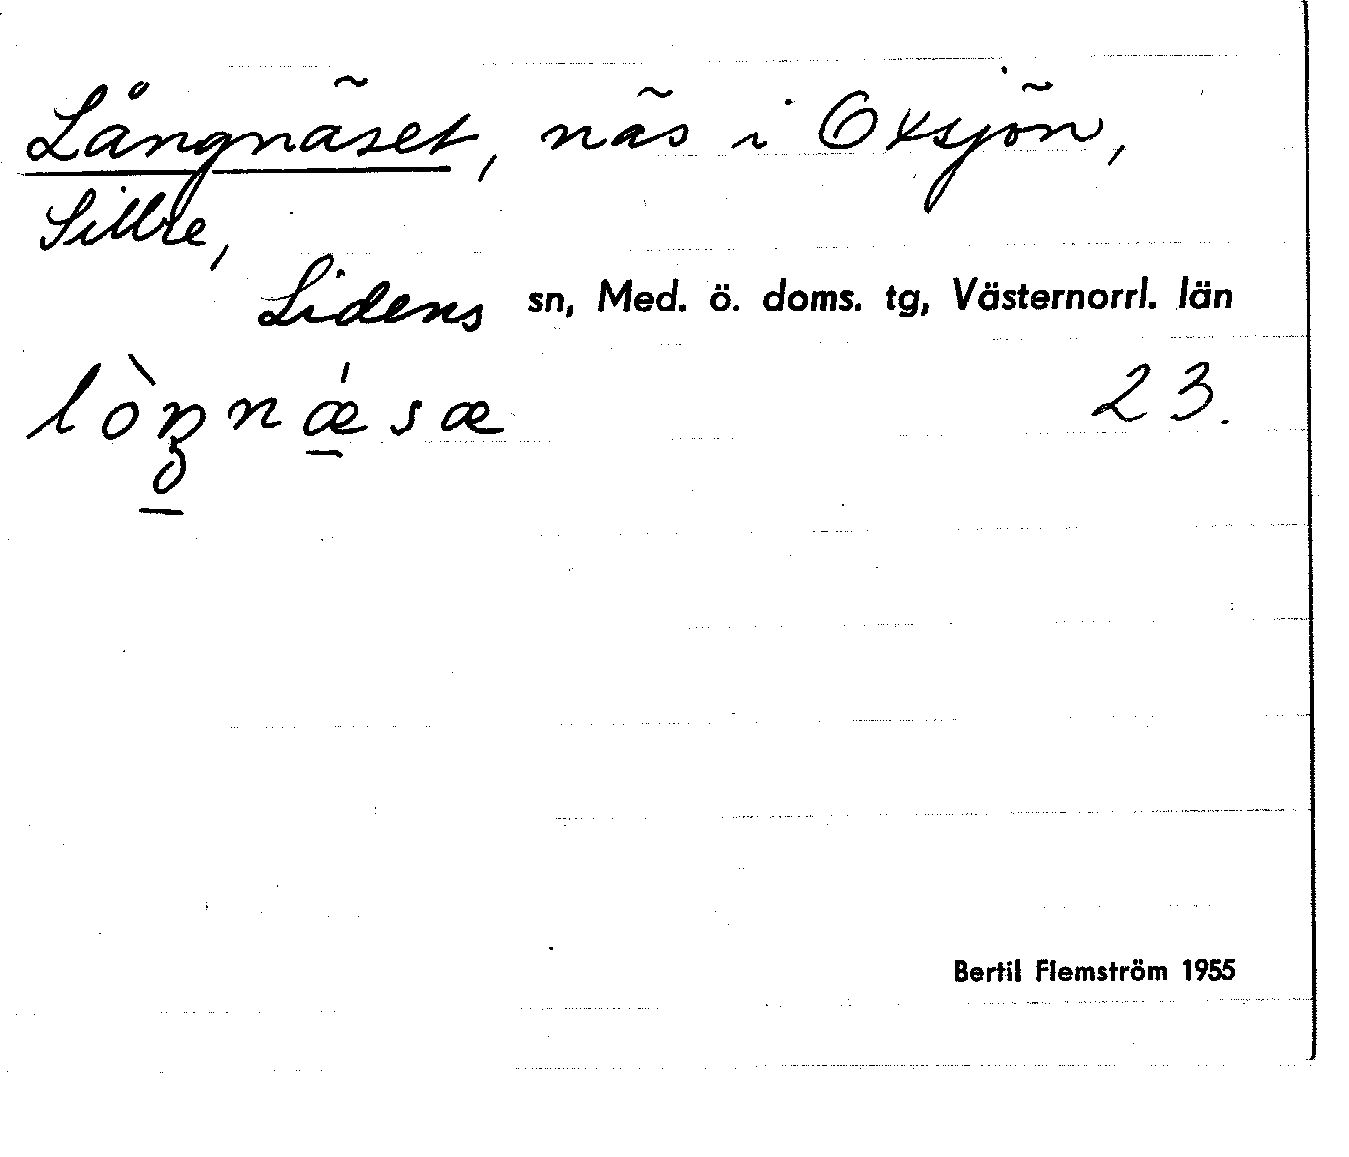 Långnäset, näs i Oxsjön,
Sillre,
Lidens sn, Med. ö. doms. tg, Västernorrl. län
lòŋnǽsæ 23.
Bertil Flemström 1955